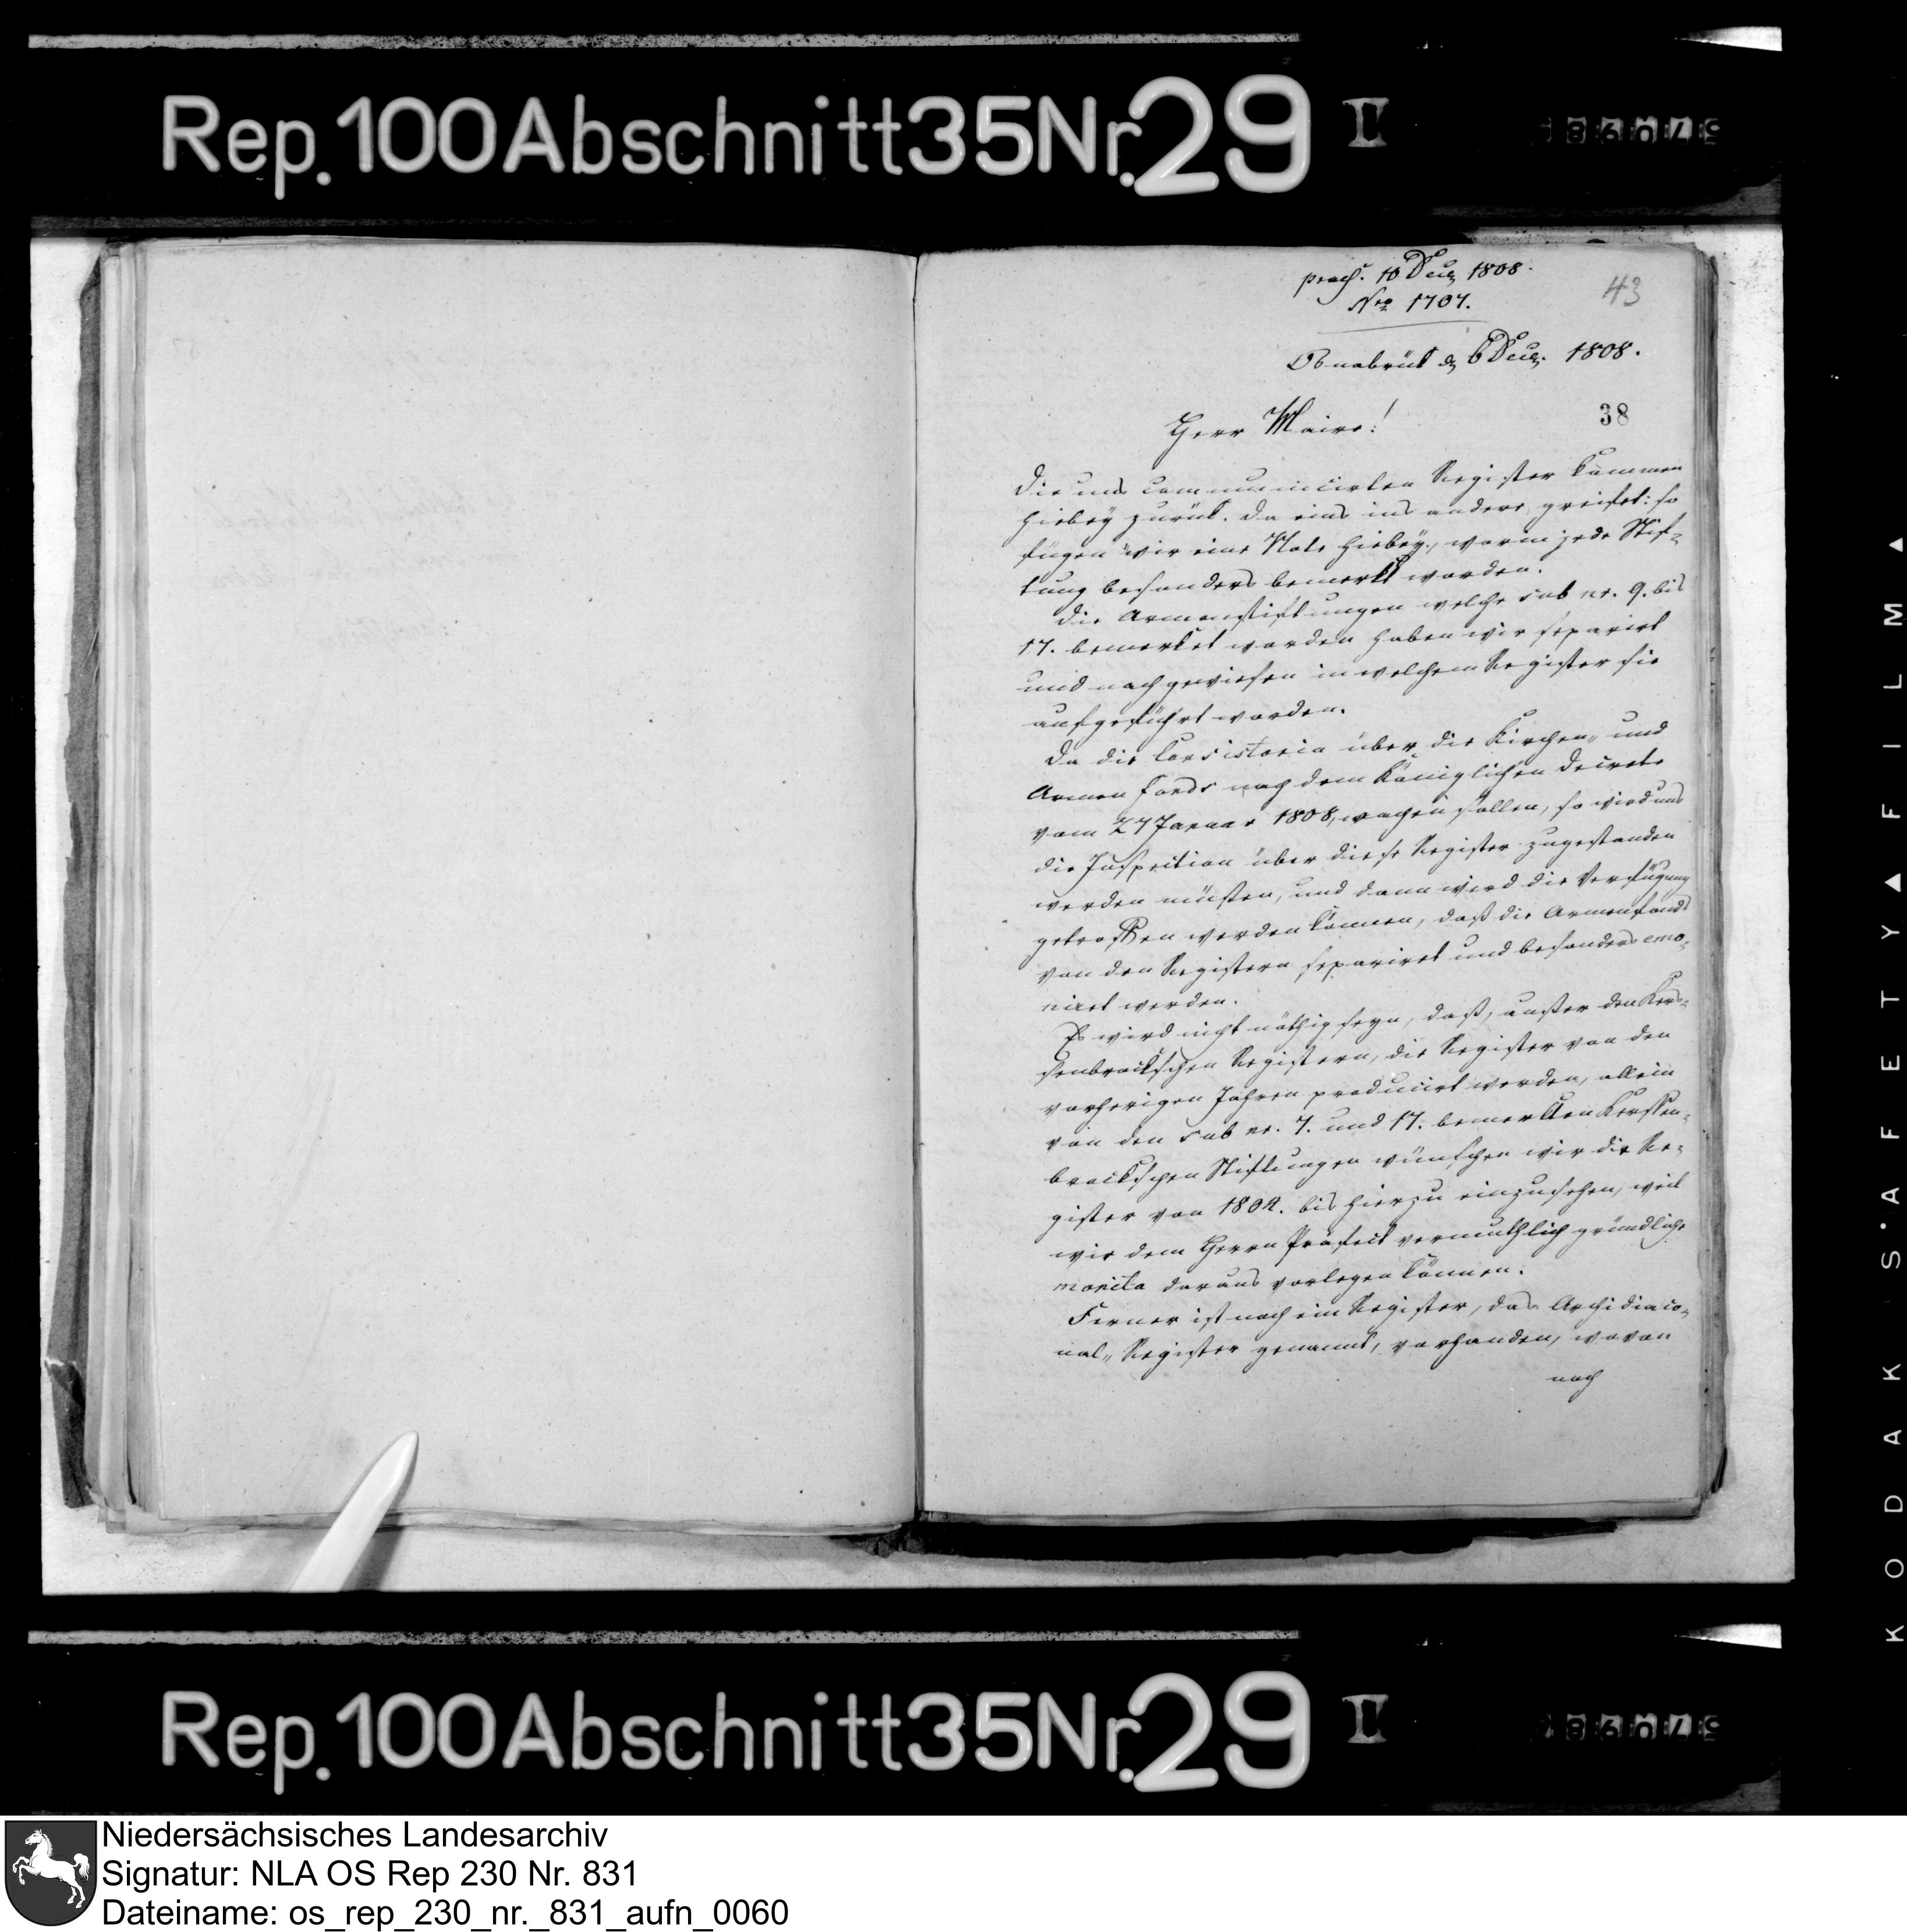 Rep. 100 Abschnitt 35 Nr. 29 II
praes. 10 Dec. 1808.
Nro 1707.
43
Osnabrück d 6 Dec. 1808.
38
Herr Maire!
Die uns communicirten Register kommen
hiebey zurück. Da eins ins andere greifet: so
fügen wir eine Note hiebey, worin jede Stif-
tung besonders bemerkt worden.
Die Armenstiftungen welche sub nr. 9. bis
17. bemerket worden haben wir separirt
und nachgewiesen in welchem Register sie
aufgeführt worden.
Da die Consistoria über die Kirchen- und
Armen fonds nach dem Königlichen Decrete
vom 27 Januar 1808, wachen sollen, so wird uns
die Inspection über diese Register zugestanden
werden müssen, und dann wird die Verfügung
getroffen werden können, daß die Armenfonds
von den Registern separiret und besonders
werden.
Es wird nicht nöthig seyn, daß, ausser den Kers-
senbrockschen Registern, die Register von den
vorherigen Jahren producirt werden, allein
von den sub nr. 7. und 17. bemerkten Kerssen-
brockschen Stiftungen wünschen wir die Re-
gister von 1802. bis hierzu einzusehen, weil
wir dem Herrn Präfect vermuthlich gründliche
monita daraus vorlegen können.
Ferner ist noch ein Register, das Archidiaco-
nal- Register genannt, vorhanden, wovon
noch
KODAK SAFETY FILM
Rep. 100 Abschnitt 35 Nr. 29 II
Niedersächsisches Landesarchiv
Signatur: NLA OS Rep 230 Nr. 831
Dateiname: os_rep_230_nr._831_aufn_0060